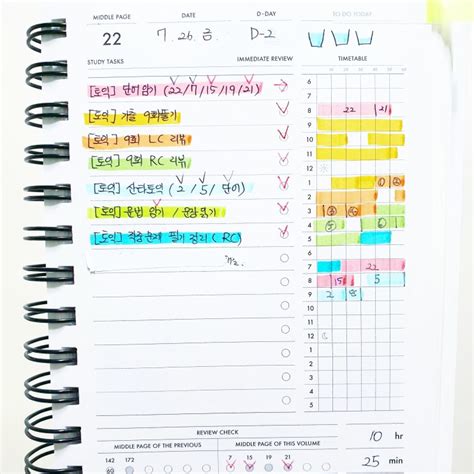 MIDDLE PAGE DATE D-DAY TO DO TODAY
22 7. 26. 금 D-2
STUDY TASKS IMMEDIATE REVIEW TIMETABLE
[토익] 단어 암기 (22/7/15/19/21)
[토익] 기출 9회풀기
[토익] 9회 LC 리뷰
[토익] 9회 RC 리뷰
[토익] 산타토익 (2/5/단어)
[토익] 문법 암기 /
[토익] 필기 정리 (RC)
6
7
8 22 21
9
10
11
12
1
2
3
4
5
6
7 22
8 15 5
9 2
10
11
12
1
2
3
4
5
REVIEW CHECK
MIDDLE PAGE OF THE PREVIOUS MIDDLE PAGE OF THIS VOLUME
142 172 7 15 19 21
10 hr
25 min